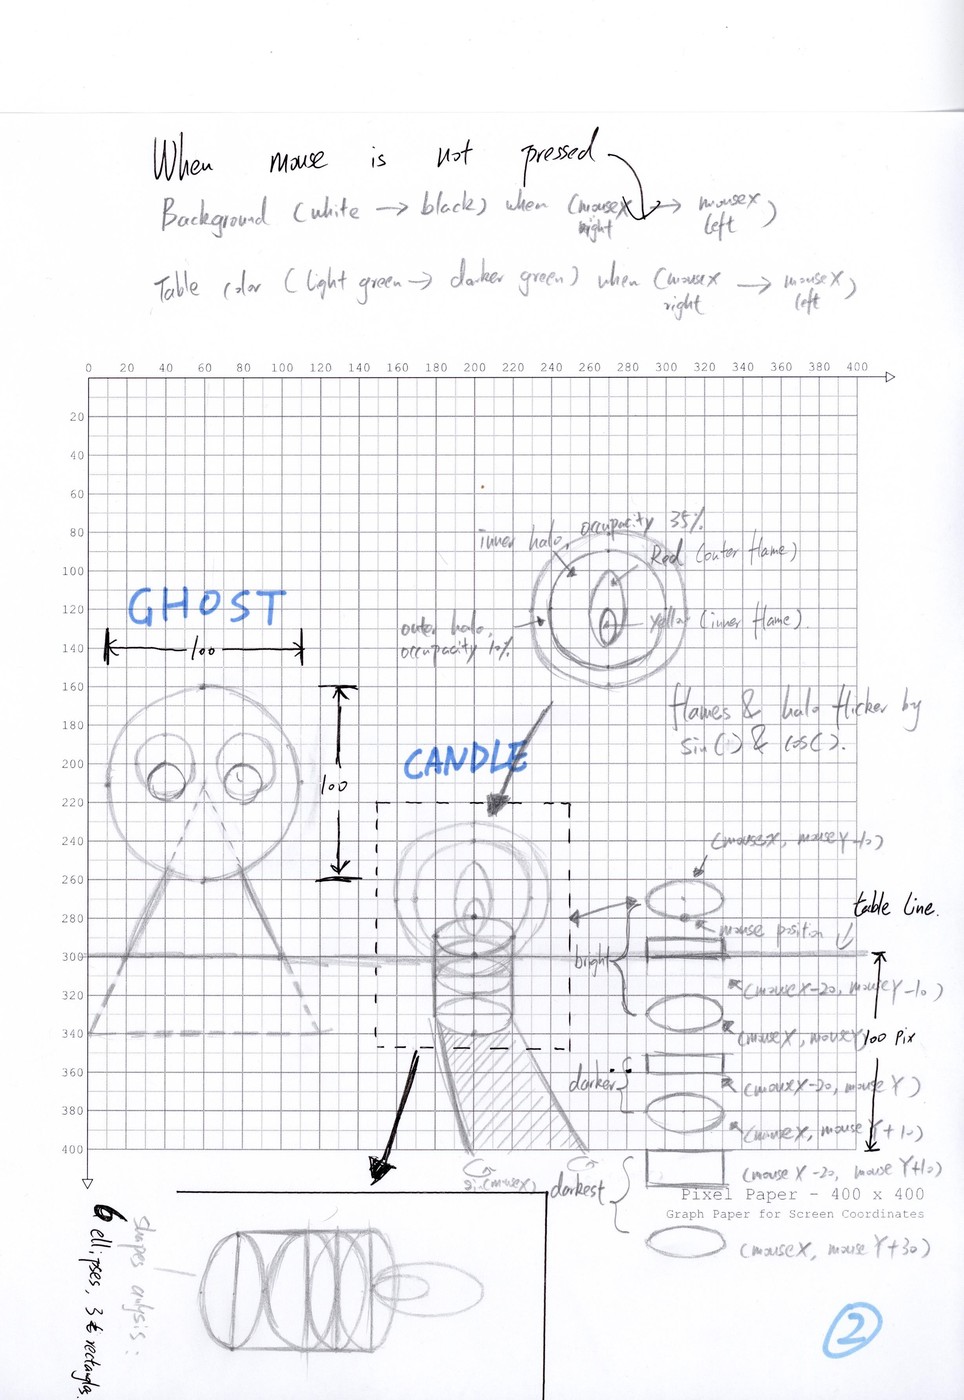 When mouse is not pressed
Background (white → black) when (mouseX right → mouseX left)
Table color (light green → darker green) when (mouseX right → mouseX left)
0 20 40 60 80 100 120 140 160 180 200 220 240 260 280 300 320 340 360 380 400
20
40
60
80
100
120
140
160
180
200
220
240
260
280
300
320
340
360
380
400
inner halo, occupacity 35%
Red (outer flame)
Yellow (inner flame).
outer halo,
occupacity 10%
GHOST
100
100
flames & halo flicker by
sin() & cos().
CANDLE
(mouseX, mouseY-10)
mouse position
table line.
bright
(mouseX-20, mouseY-10)
(mouseX, mouseY)
100 pix
darker
(mouseX-20, mouseY)
(mouseX, mouseY+10)
darkest
(mouseX-20, mouseY+10)
Pixel Paper - 400 x 400
Graph Paper for Screen Coordinates
(mouseX, mouseY+30)
shapes analysis:
6 ellipses, 3 rectangles.
2